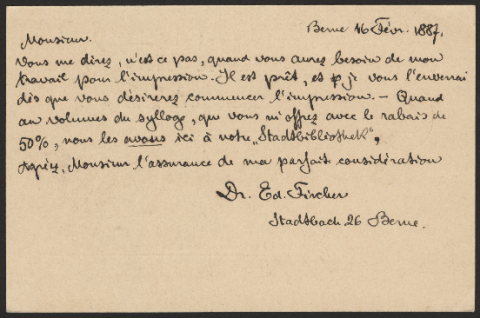 Berne 16 Févr. 1887,
Monsieur.
Vous me direz, n'est ce pas, quand vous aurez besoin de mon
travail pour l'impression. Il est prêt, et je vous l'enverrai
dès que vous désirerez commencer l'impression. — Quand
au volumes du sylloge, que vous m'offrez avec le rabais de
50%, nous les avons ici à notre „Stadtbibliothek“,
Agréez, Monsieur l'assurance de ma parfait considération
Dr. Ed. Fischer
Stadtbach 26 Berne.